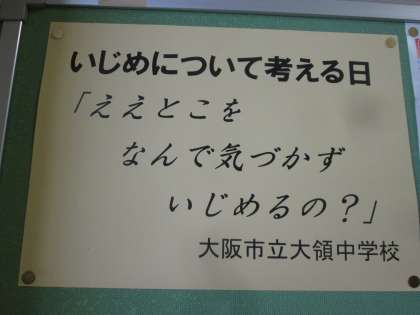 いじめについて考える日
「ええとこを
なんで気づかず
いじめるの？」
大阪市立大領中学校